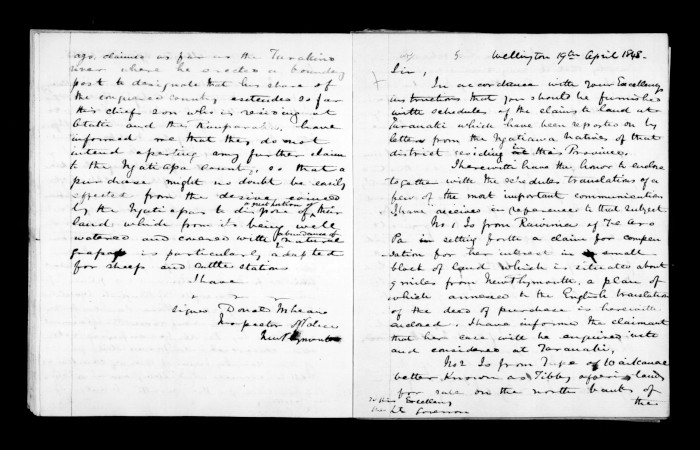 ago, claimed as far as the Turakina
river where he erected a boundary
post to designate that his share of
the conquered country extended so far
this chief's son who is residing at
Otaki and the Kumparaka, have
informed me that they do not
intend asserting any further claim
to the Ngatiapa country, so that a
purchase might no doubt be easily
effected from the desire evinced
by the Ngatiapas to dispose of a portion of their
land which from its being well
watered and covered with abundance of natural
grass is particularly adapted
for sheep and cattle stations
I have
Signed Donald McLean
Inspector of Police
New Plymouth
Wellington 19th April 1848.
Sir,
In accordance with Your Excellency's
instructions that you should be furnished
with schedules of the claims to land at
Taranaki which have been reported on by
letters from the Ngatiawa Natives of that
district residing in this Province.
I herewith have the honor to enclose
together with the schedules translations of a
few of the most important communications
I have received in reference to that subject
No 1 Is from Rawinia of Te Aro
Pa in setting forth a claim for compen
sation for her interest in a small
block of land which is situated about
9 miles from New Plymouth, a plan of
which annexed to the English translation
of the deed of purchase is herewith
enclosed. I have informed the claimant
that her case will be enquired into
and considered at Taranaki,
No 2 Is from Tupe of Waikanae
better known as Tibby offering land
for sale on the north banks of
the
To His Excellency
the Lt Governor